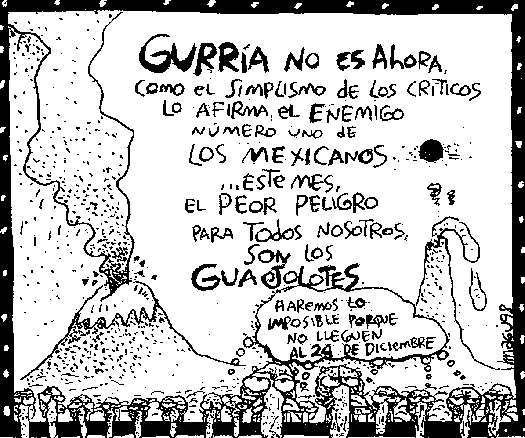 GURRÍA NO ES AHORA,
COMO EL SIMPLISMO DE LOS CRÍTICOS
LO AFIRMA, EL ENEMIGO
NÚMERO UNO DE
LOS MEXICANOS.
...ESTE MES,
EL PEOR PELIGRO
PARA TODOS NOSOTROS,
SON LOS
GUAJOLOTES
HAREMOS LO
IMPOSIBLE PORQUE
NO LLEGUEN
AL 24 DE DICIEMBRE